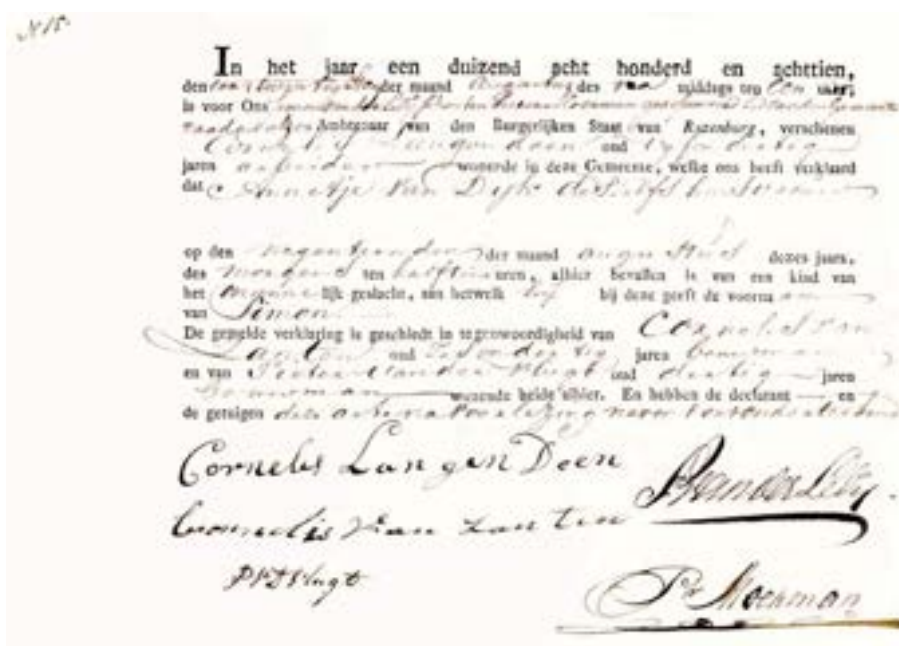 N 15.
In het jaar een duizend acht honderd en achttien,
den der maand Augustus des middags ten een uur,
is voor Ons
Ambtenaar van den Burgerlijken Staat van Rozenburg, verschenen
Cornelis Langendoen oud dertig
jaren arbeider wonende in deze Gemeente, welke ons heeft verklaard
dat Annetje Van Dijk deszelfs huisvrouw
op den negentienden der maand Augustus dezes jaars,
des morgens ten half uren, alhier bevallen is van een kind van
het manne lijk geslacht, aan hetwelk hij bij deze geeft de voorna
van Simon
De gemelde verklaring is geschiedt in tegenwoordigheid van Cornelis van
Zanten oud jaren bouwman
en van Pieter van der Vlugt oud dertig jaren
Bouwman wonende beide alhier. En hebben de declarant en
de getuigen deze acte na voorlezing
Cornelis Lan gen Doen
P van der Leer
Cornelis van zan ten
P V D Vlugt
Pr Moerman